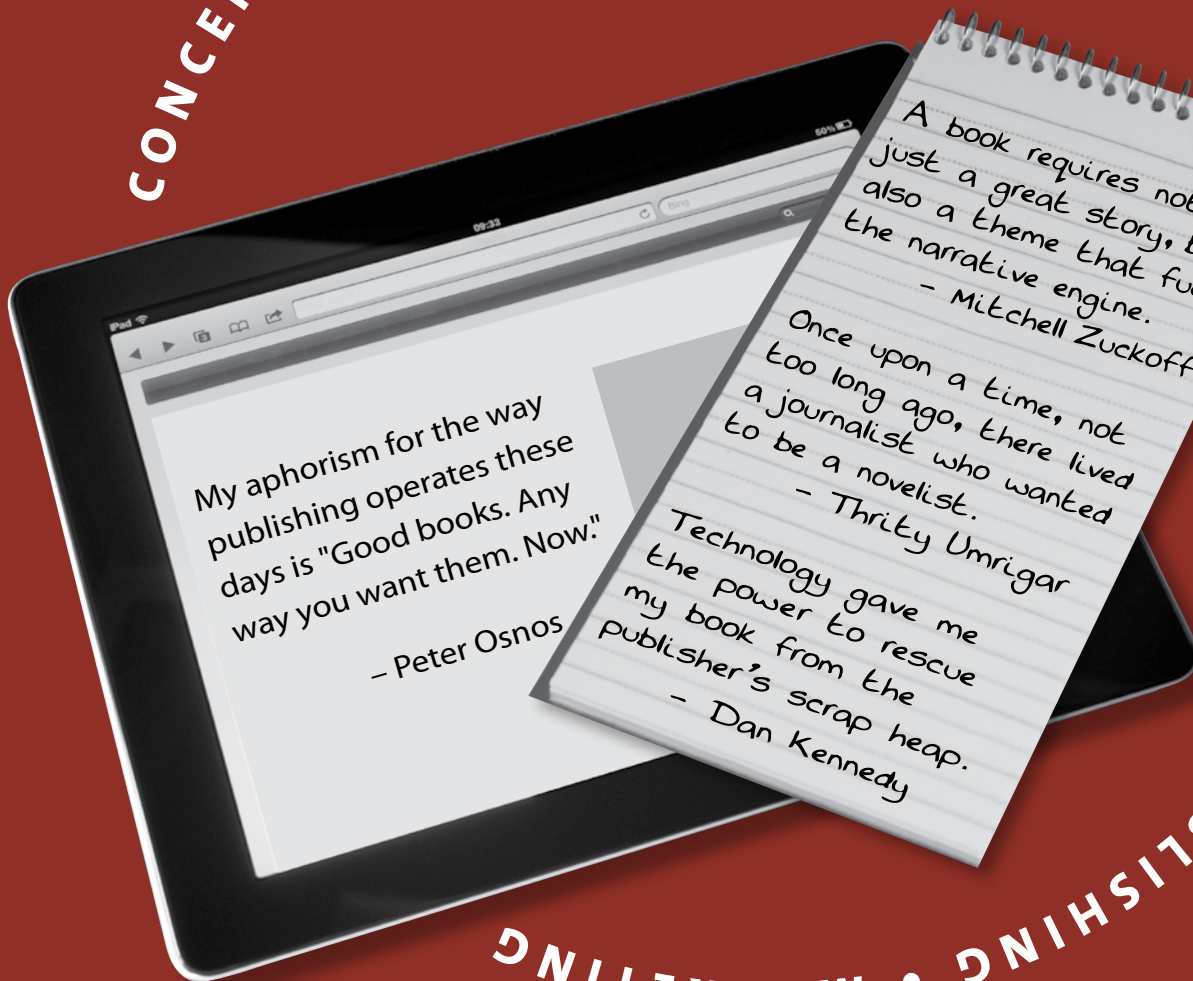 CONCE
iPad
09:33
60%
Bing
My aphorism for the way
publishing operates these
days is "Good books. Any
way you want them. Now."
– Peter Osnos
A book requires not
just a great story,
also a theme that
the narrative engine.
- Mitchell Zuckoff
Once upon a time, not
too long ago, there lived
a journalist who wanted
to be a novelist.
- Thrity Umrigar
Technology gave me
the power to rescue
my book from the
publisher's scrap heap.
- Dan Kennedy
LISHING •